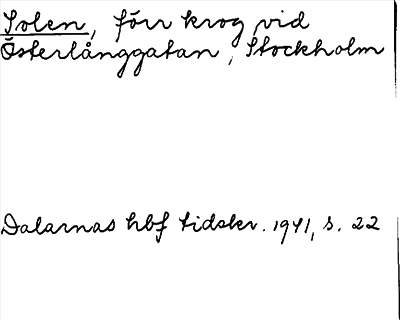 Solen, förr krog vid
Österlånggatan, Stockholm
Dalarnas hbf tidskr. 1941, s. 22